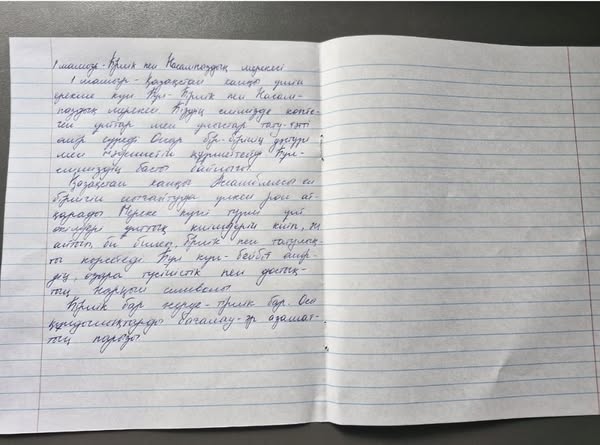 1 мамыр - Бірлік пен Ынтымақтың мерекесі
1 мамыр - Қазақстан халқы үшін
ерекше күн Бұл - Бірлік пен
мерекесі Біздің елімізде көпте-
ген ұлттар мен ұлыстар тату-тәтті
өмір сүреді Олар бір-бірінің дәстүрі
мен мәдениетін құрметтейді Бұл -
еліміздің басты байлығы
Қазақстан халқы Ассамблеясы ел
бірлігін нығайтуда үлкен рөл ат-
қарады Мереке күні түрлі ұлт
өкілдері ұлттық киімдерін киіп, ән
айтып, би билеп, бірлік пен татулық-
ты көрсетеді Бұл күн - бейбіт өмір-
дің, өзара түсіністік пен достық-
тың нарқын символы
Бірлік бар жерде - тірлік бар. Осы
құндылықтарды бағалау - әр азамат-
тың парызы